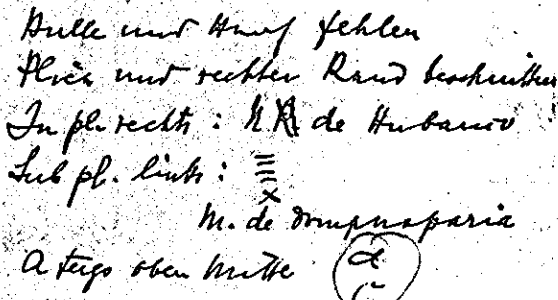 Bulle und Hanf fehlen
Plica und rechter Rand beschnitten
In pl. rechts : N R de Hubanco
Sub pl. links :
x
M. de Dompnaparia
A tergo oben Mitte